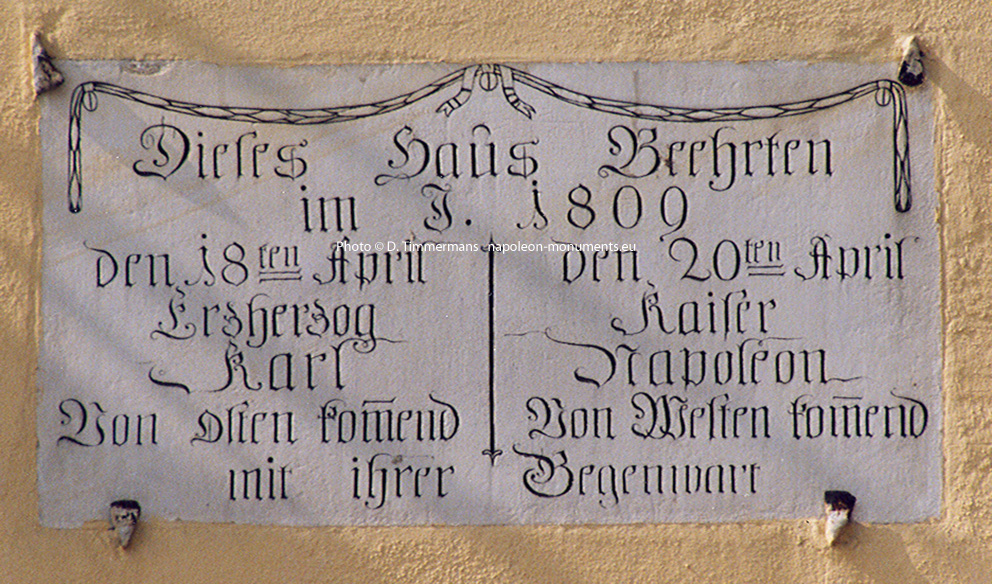 Dieses Haus Beehrten
im J. 1809
Photo © D. Timmermans - napoleon-monuments.eu
den 18ten April
Erzherzog
Karl
Von osten kom̄end
den 20ten April
Kaiser
Napoleon
Von Westen kom̄end
mit ihrer Gegenwart